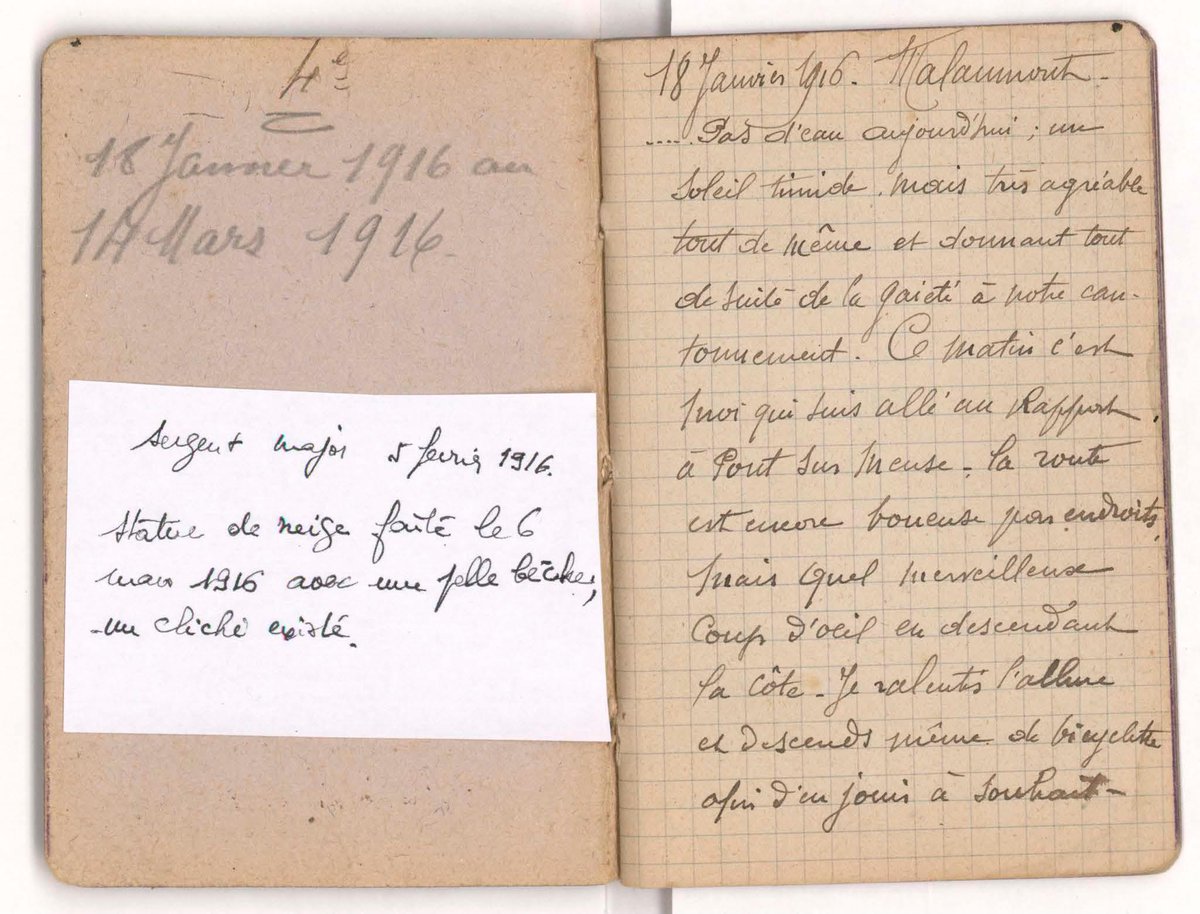 4e
18 Janvier 1916 au
14 Mars 1916.
sergent major 5 fevrier 1916.
statue de neige faite le 6
mars 1916 avec une pelle bêche,
un cliché existe.
18 Janvier 1916. Malaumont -
..... Pas d'eau aujourd'hui ; un
soleil timide. mais très agréable
tout de même et donnant tout
de suite de la gaieté à notre can-
tonnement. Ce matin c'est
moi qui suis allé au Rapport
à Pont sur Meuse - la route
est encore boueuse par endroits,
mais quel merveilleux
coup d'oeil en descendant
la côte - Je ralentis l'allure
et descends même de bicyclette
afin d'en jouir à souhait -